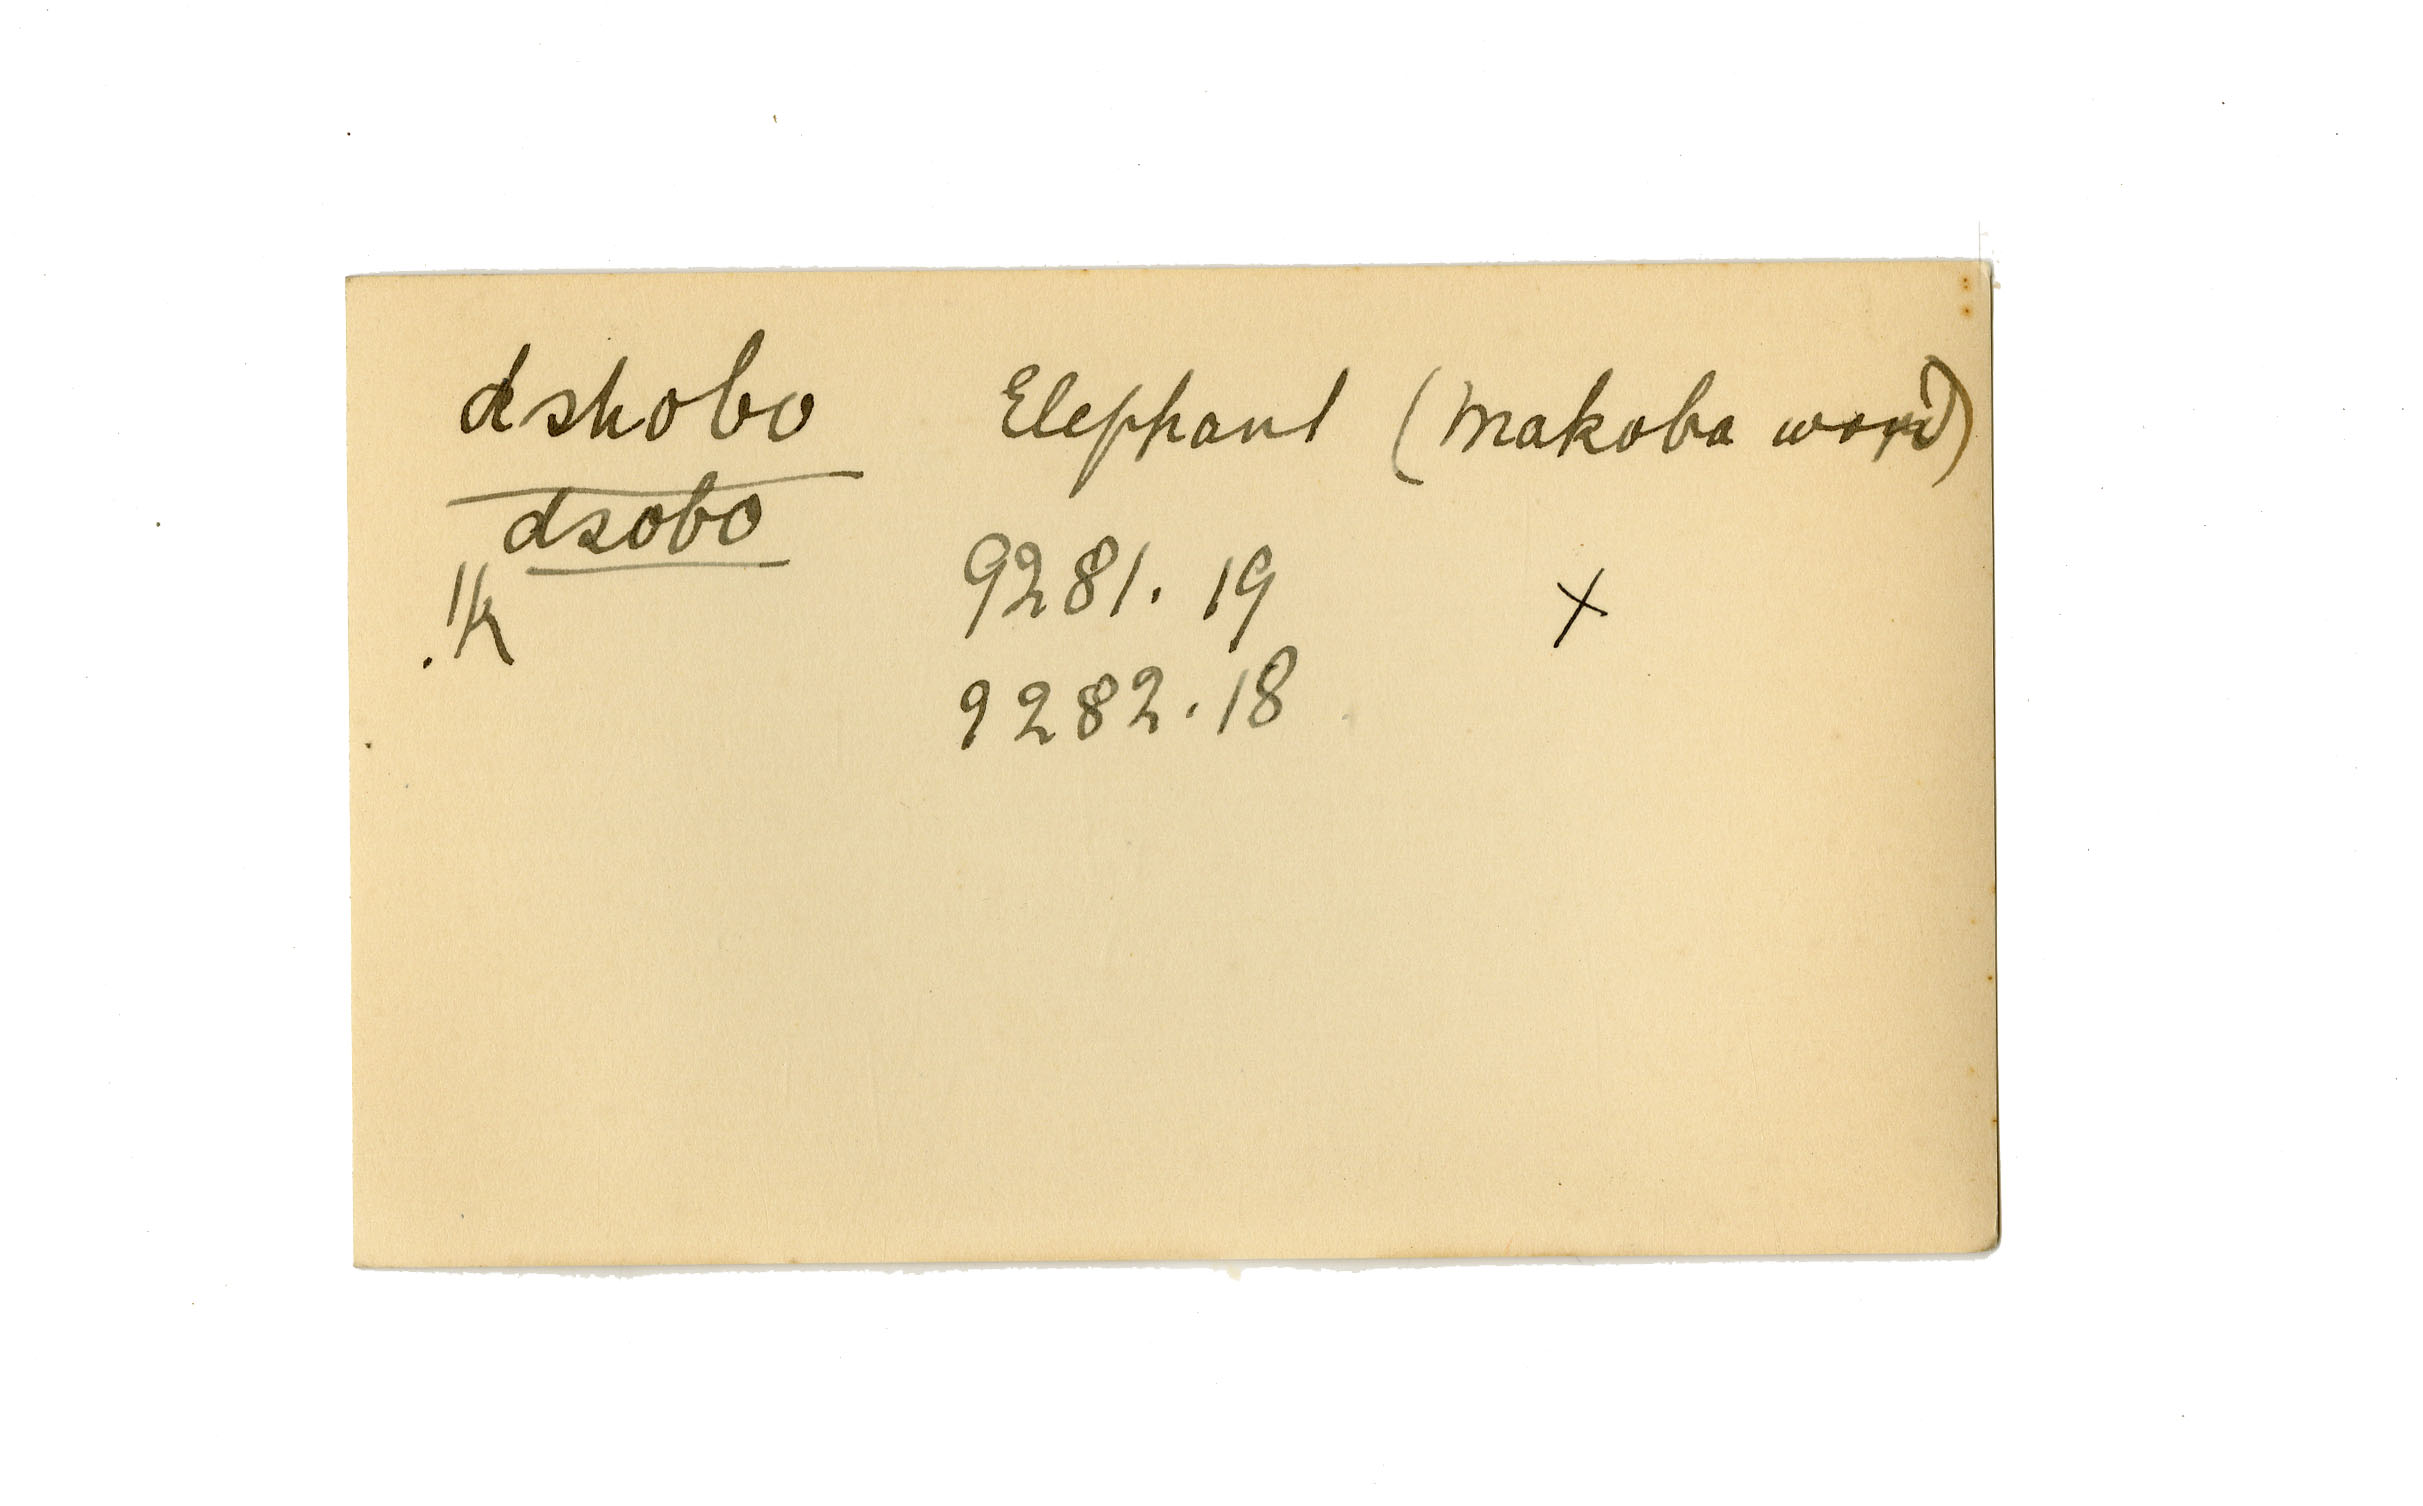 dshobo Elephant (Makoba word)
dsobo
!k 9281. 19 x
9282. 18